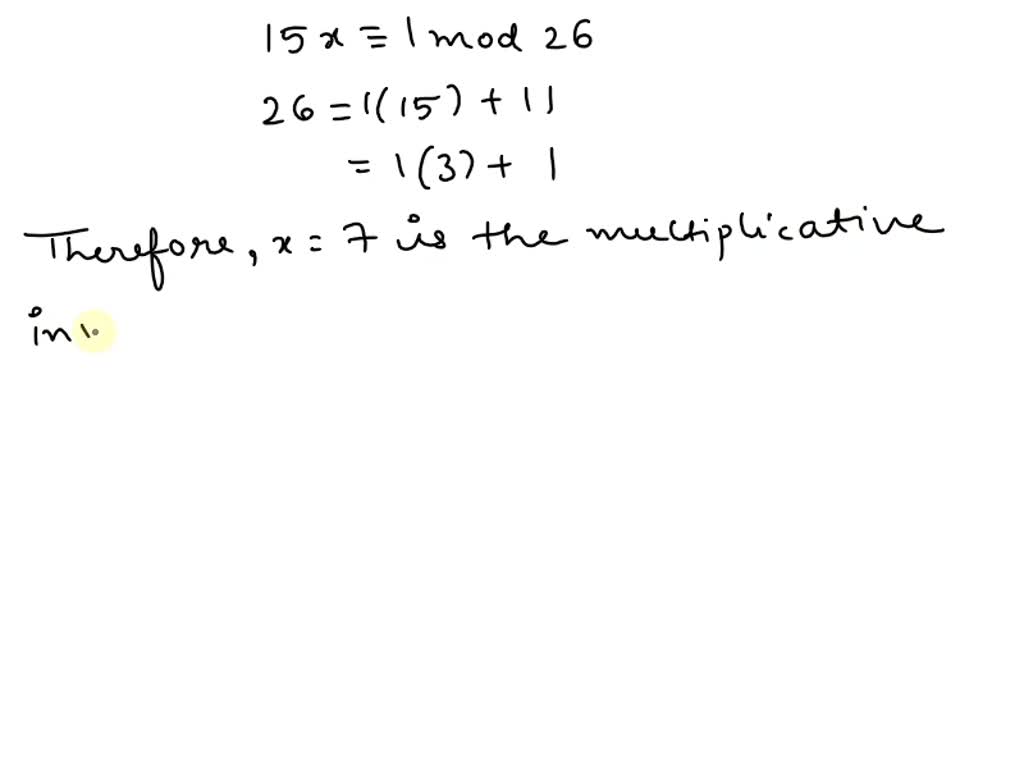 15x ≡ 1 mod 26
26 = 1(15) + 11
= 1(3) + 1
Therefore, x = 7 is the multiplicative
in